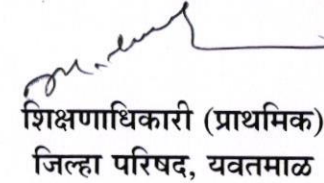 शिक्षणाधिकारी (प्राथमिक)
जिल्हा परिषद, यवतमाळ